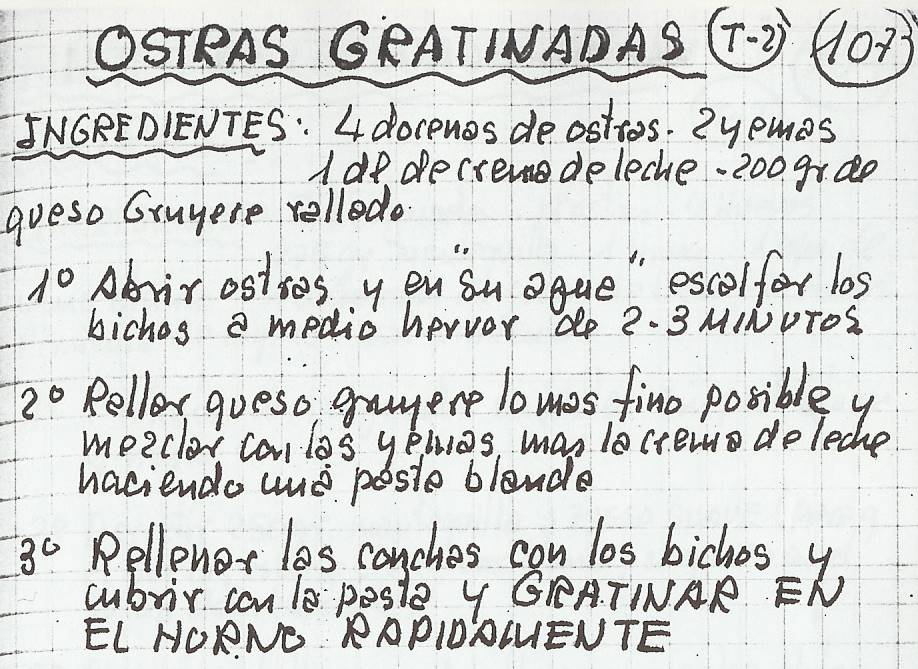 OSTRAS GRATINADAS (T-2) (107)
INGREDIENTES: 4 docenas de ostras. 2 yemas
1 dl de crema de leche - 200 gr de
queso Gruyere rallado.
1º Abrir ostras y en "su agua" escalfar los
bichos a medio hervor de 2-3 MINUTOS
2º Rallar queso gruyere lo mas fino posible y
mezclar con las yemas mas la crema de leche
haciendo una pasta blanda
3º Rellenar las conchas con los bichos y
cubrir con la pasta y GRATINAR EN
EL HORNO RAPIDAMENTE